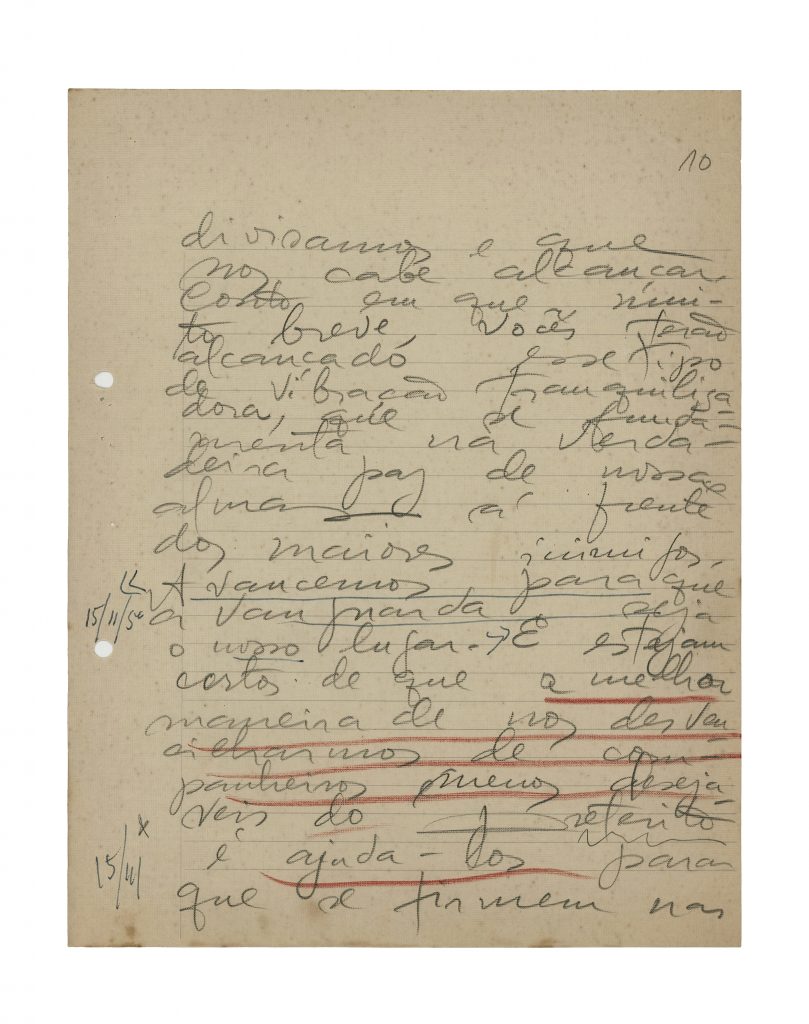 10
divisamos e que
nos cabe alcançar.
Conto em que, mui-
to breve, vocês terão
alcançado esse tipo
de vibração tranquiliza-
dora, que se funda-
menta na verda-
deira paz de nossas
almas á frente
dos maiores inimigos.
Avancemos para que
a vanguarda seja
o nosso lugar. → E estejam
certos de que a melhor
maneira de nos desven-
cilharmos de com-
panheiros menos desejá-
veis do preterito
é ajuda-los para
que se firmem nas
15/11/54
15/11
x